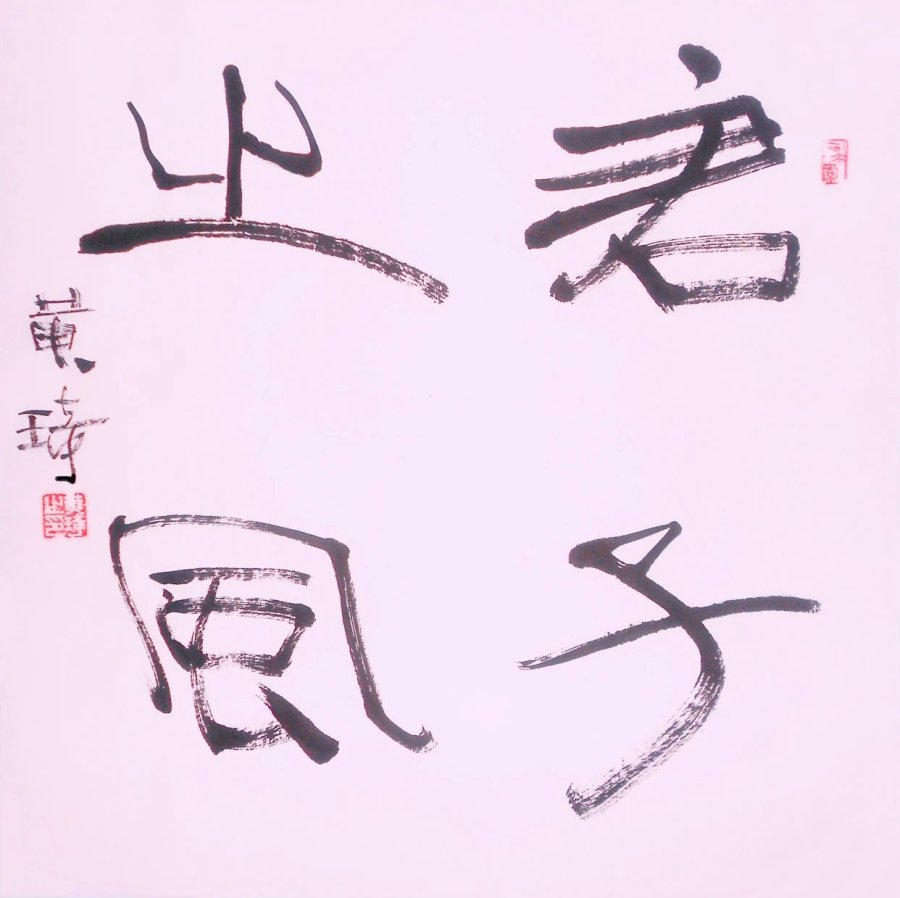 君子
之風
黄琦